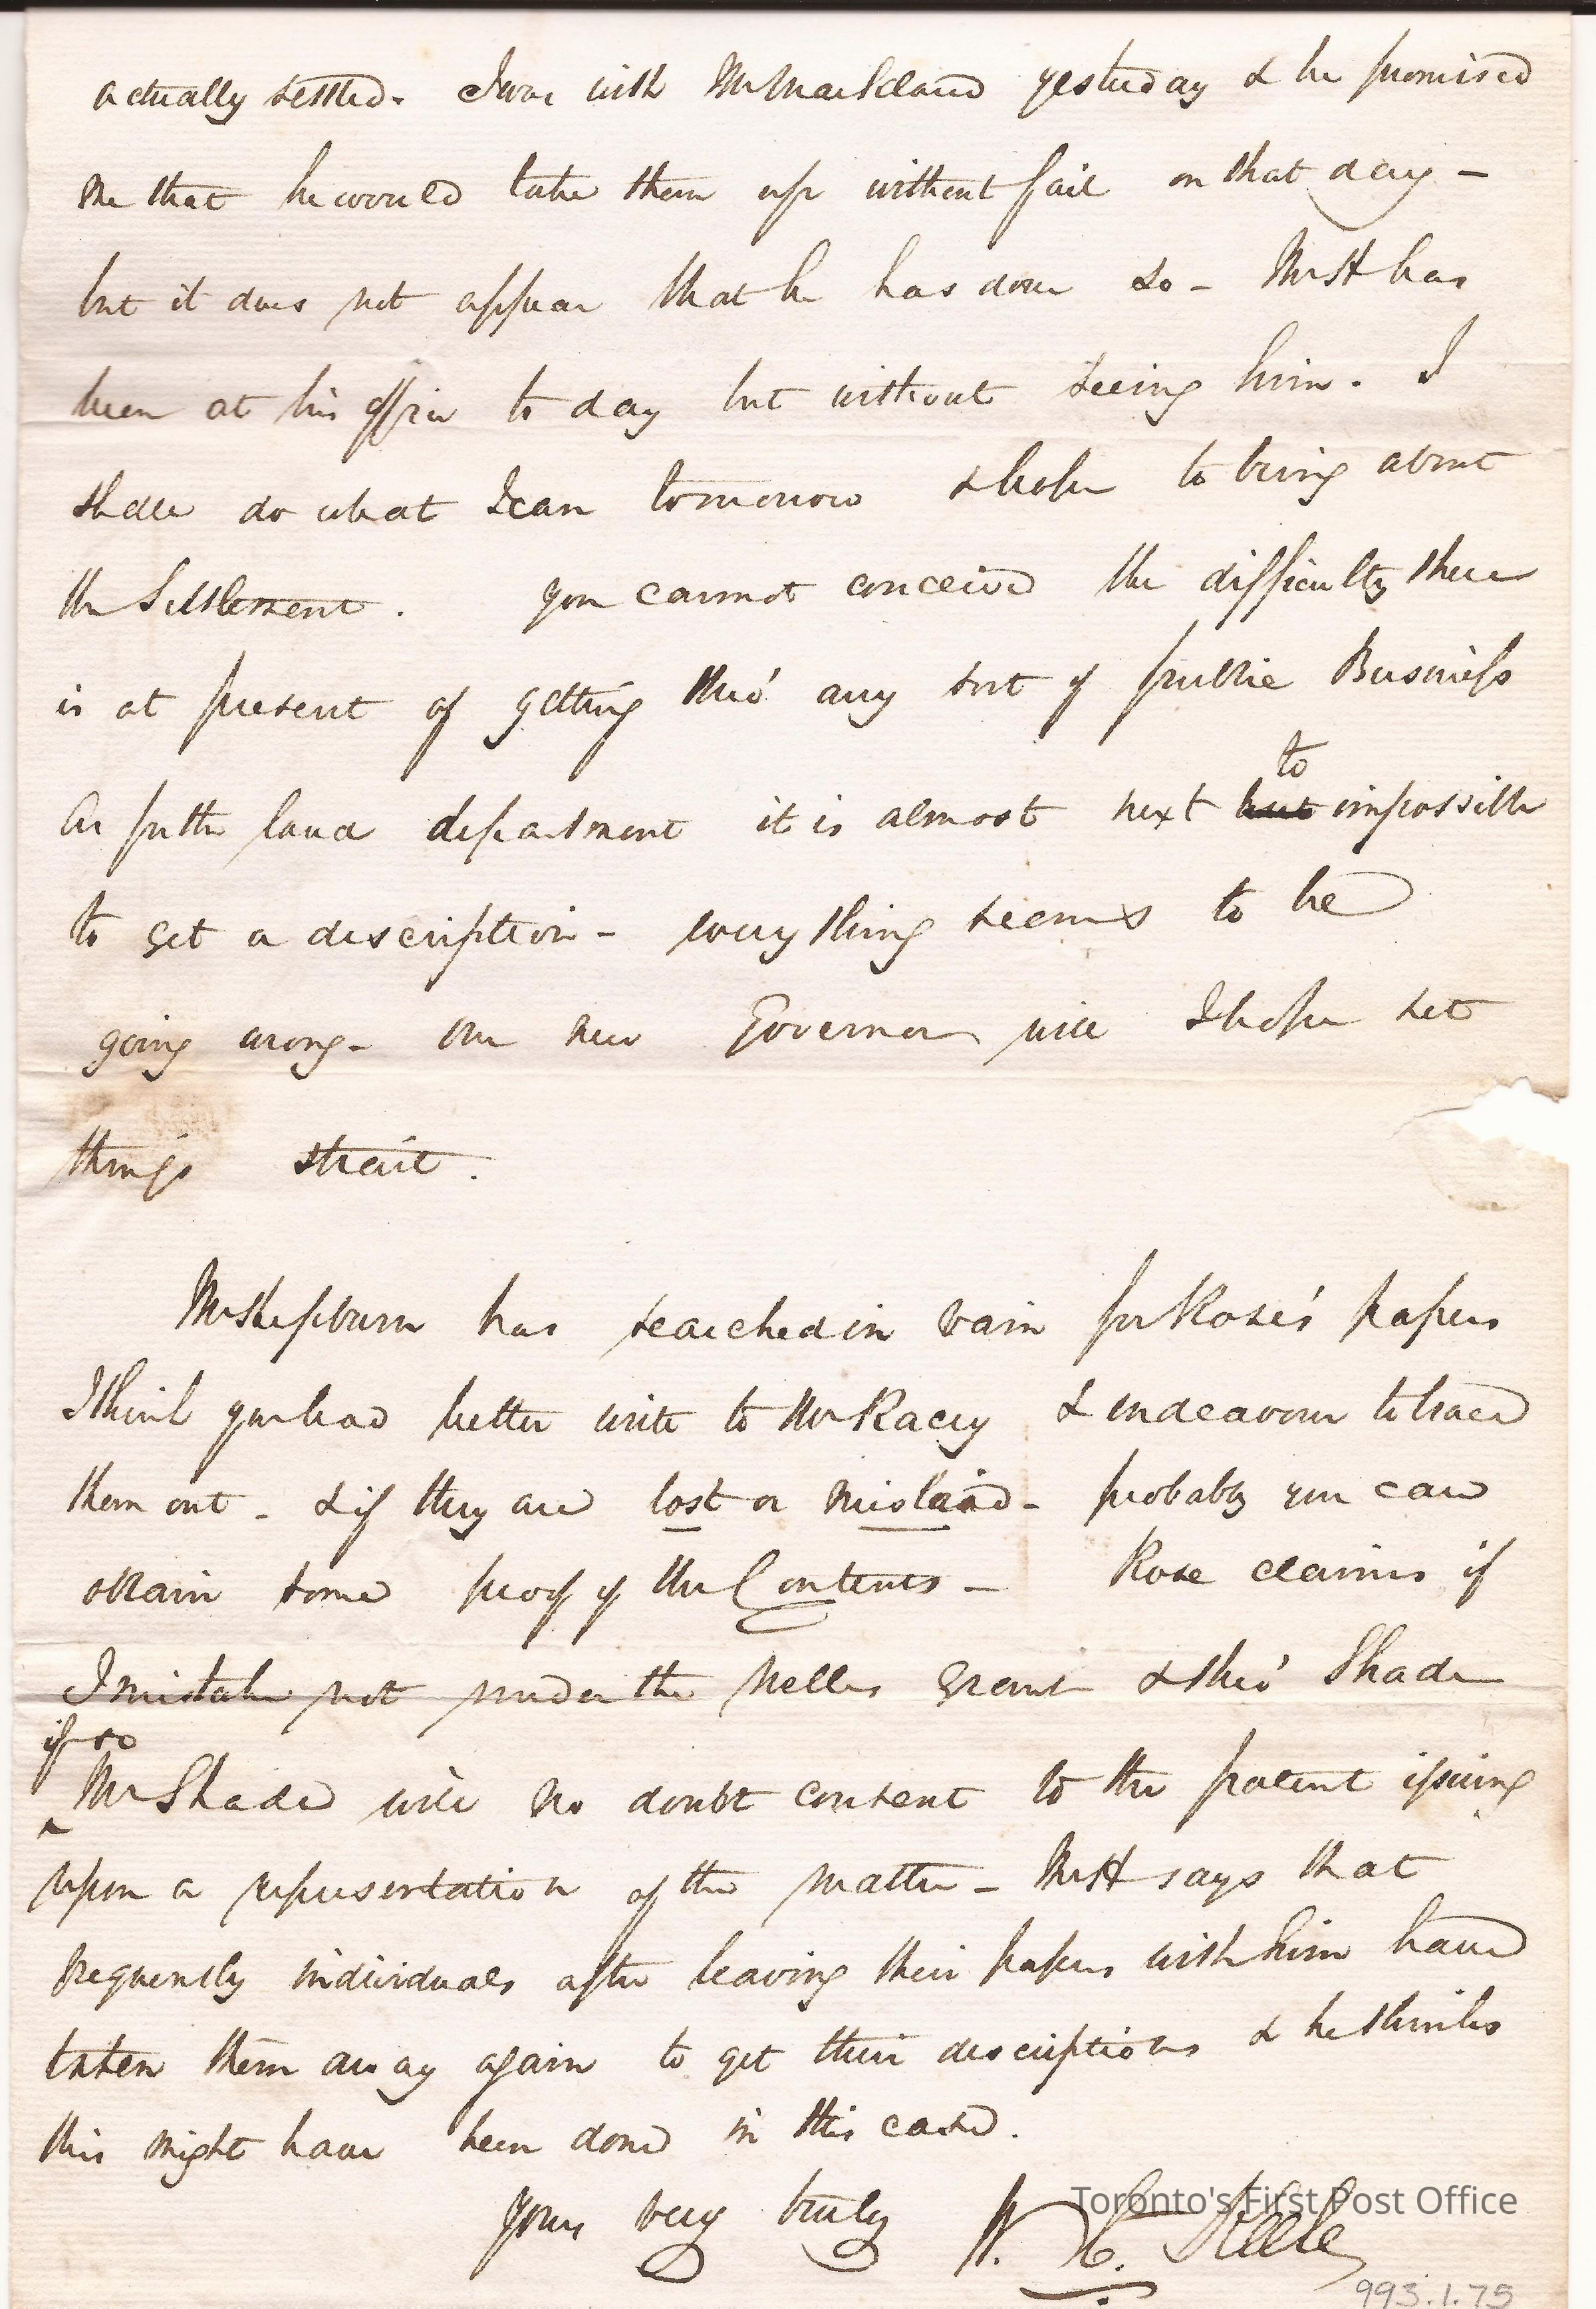 actually settled. I was with Mr Markland yesterday & he promised
me that he would take them up without fail on that day –
but it does not appear that he has done so – Mr H has
been at his office to day but without seeing him. I
shall do what I can tomorrow & hope to bring about
the Settlement. you cannot conceive the difficulty there
is at present of getting thro' any sort of public Business
As for the land department it is almost next but to impossible
to get a description – every thing seems to be
going wrong – Our new Governor will I hope set
things strait.
Mr Hepburn has searched in vain for Rose's papers
I think you had better write to Mr Racey & endeavour to trace
them out – & if they are lost or mislaid – probably you can
obtain some proof of the Contents – Rose claims if
I mistake not under the Nelles Grant & thro' Shade
if so
Mr Shade will no doubt consent to the patent issuing
upon a representation of the matter – Mr H says that
frequently individuals after leaving their papers with him have
taken them away again to get their descriptions & he thinks
this might have been done in this case.
Yours very truly
Toronto's First Post Office
993.1.75